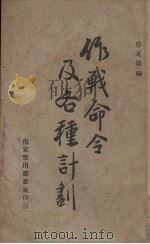 作戰命令
及各種計劃
南京軍用圖書社印行